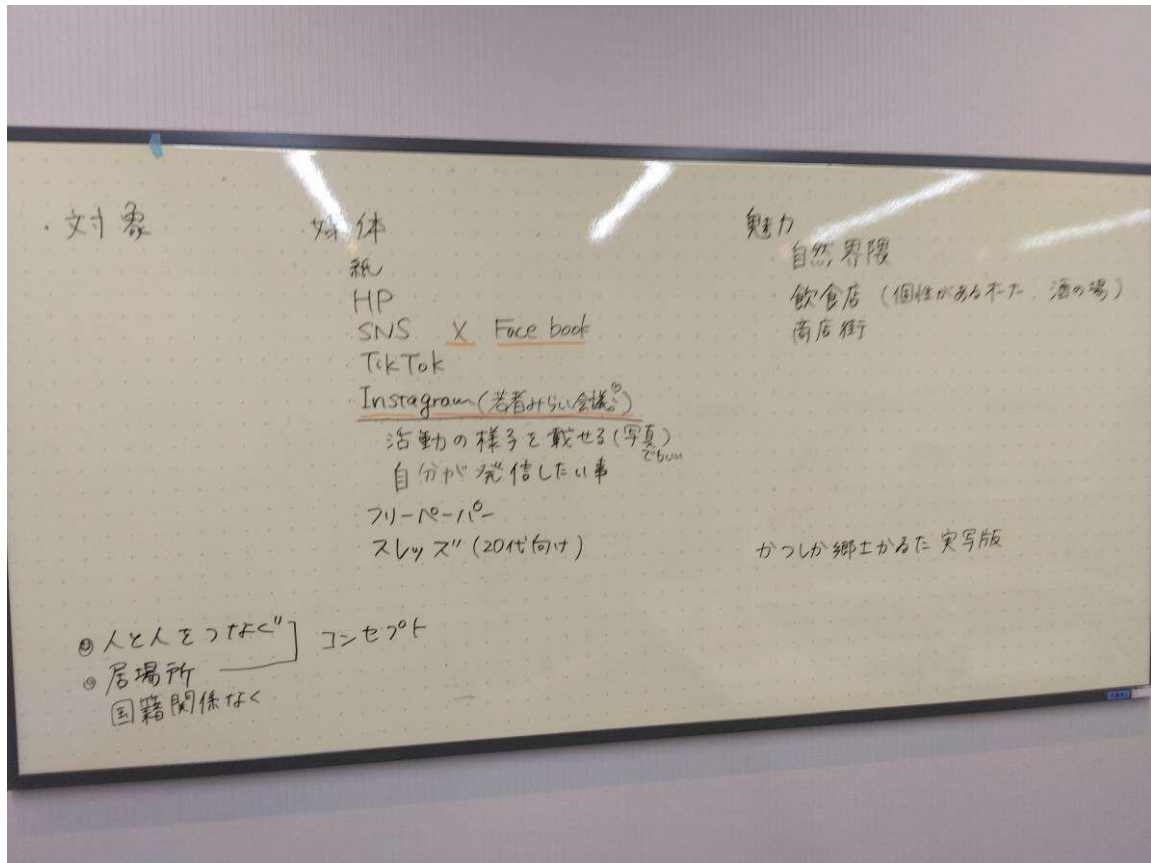 ・対象
媒体
紙
HP
SNS X Facebook
TikTok
Instagram(若者みらい会議)
活動の様子を載せる(写真でもいい)
自分が発信したい事
フリーペーパー
スレッズ(20代向け)
魅力
自然界隈
飲食店(個性がある 酒の場)
商店街
かつしか郷土かるた 実写版
◎人と人をつなぐ
◎居場所
コンセプト
国籍関係なく